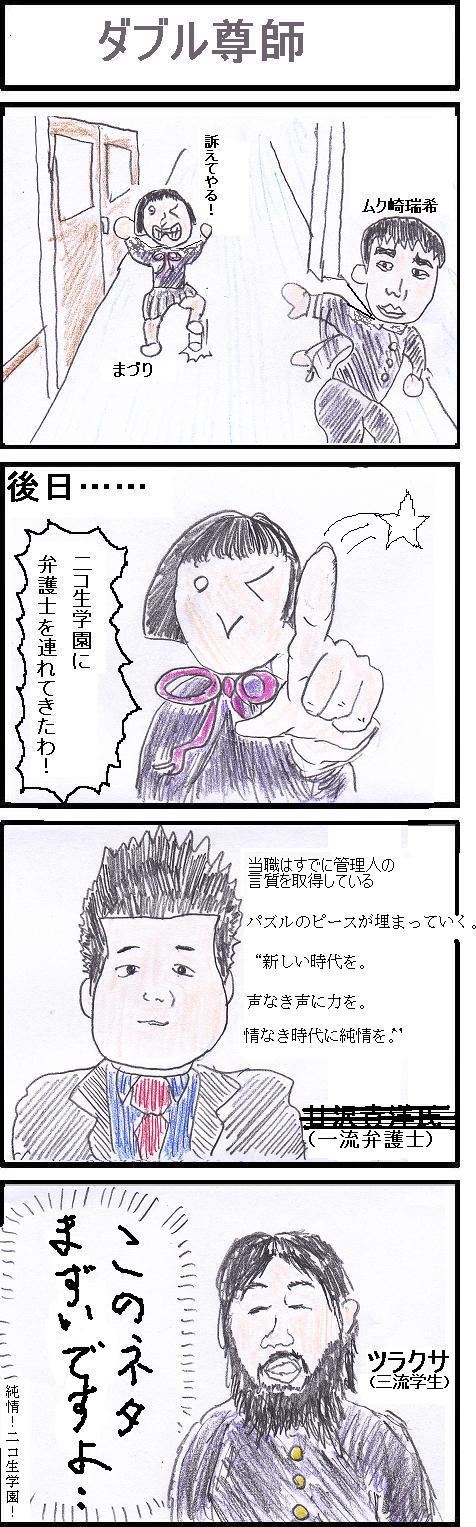 ダブル尊師
訴えてやる！
ムク崎瑞希
まづり
後日……
ニコ生学園に
弁護士を連れてきたわ！
当職はすでに管理人の
言質を取得している
パズルのピースが埋まっていく。
“新しい時代を。
声なき声に力を。
情なき時代に純情を。”
(一流弁護士)
このネタ
まずいですよ…
ツラクサ
(三流学生)
純情！ニコ生学園！